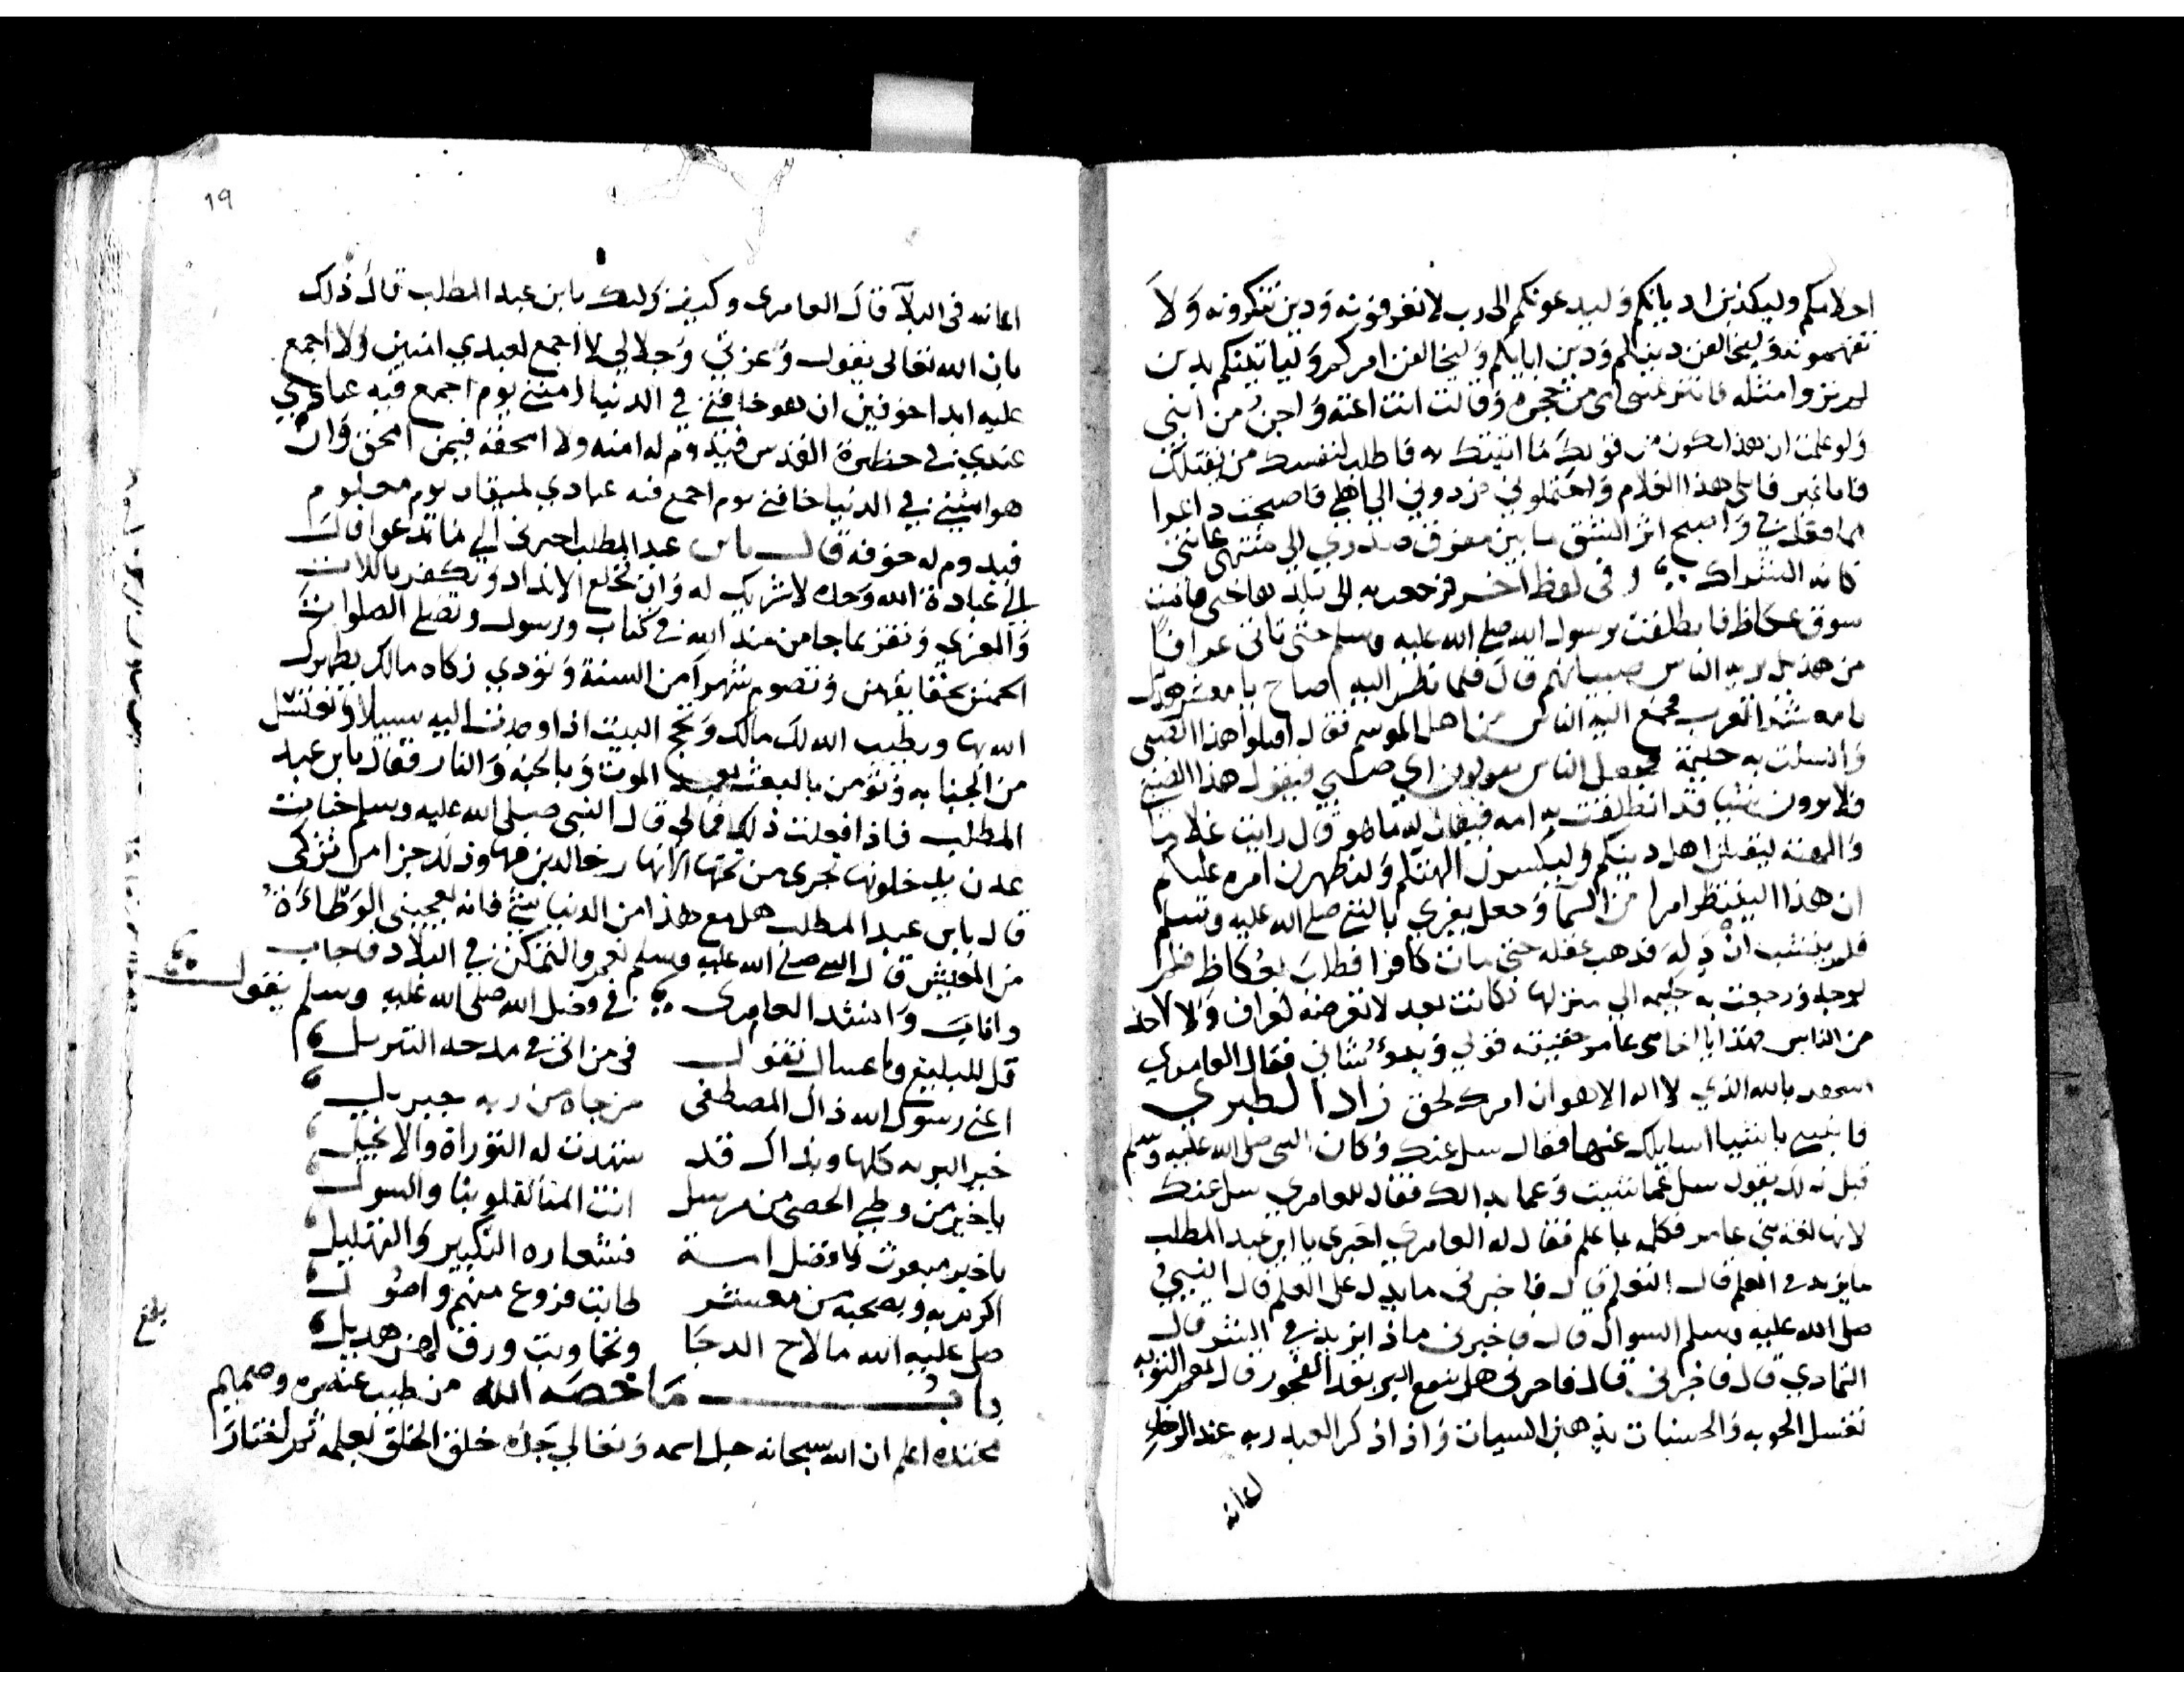 احلامكم وليكذبن اديانكم وليدعونكم الى رب لا تعرفونه ودين تنكرونه ولا
تفهمونه وليخالفن دينكم ودين ابايكم وليخالفن امركم ولياتينكم بدين
لم تروا مثله فانتزعتني امي من حجره وقالت انت اعته واجن من ابني
ولو علمت ان هذا يكون من قولك ما اتيتك به فاطلب لنفسك من يقتلك
فانا غير قاتلي هذا الغلام واحتملوني فردوني الي اهلي فاصبحت
مما فعل بي واصبح اثر الشق ما بين مفرق صدري الي منتهى عانتي
كانه الشراك وفى لفظ اخر فرجعت به الى بلدها حتى قامت
سوق عكاظ فانطلقت برسول الله صلى الله عليه وسلم حتى تاتى عرافا
من هذيل يريه الناس صبيانهم قال فلما نظر اليه صاح يا معشر هذيل
يا معشر العرب فجمع اليه الناس من اهل الموسم فقال اقبلوا هذا الصبي
وانسلت به حليمة فجعل الناس يقولون اي صبي فيقول هذا الصبي
فلا يرون شيا قد انطلقت به امه فيقال له ما هو قال رايت غلاما
والهته ليقتلن اهل دينكم وليكسرن الهتكم وليظهرن امره عليكم
ان هذا لينتظر امرا من السما وجعل يغري بالنبي صلى الله عليه وسلم
فلم ينشب ان دله فذهب عقله حتى مات كافرا فطلب بعكاظ فلم
يوجد ورجعت به حليمه الي منزلها فكانت بعد لا تعرضه لعراف ولا لاحد
من الناس فهذا يا اخا بني عامر حقيقة قولي وبدؤ شاني فقال العامري
اشهد بالله الذي لا اله الا هو ان امرك لحق زاد الطبري
فانبيني باشيا اسايلك عنها فقال سل عنك وكان النبي صلى الله عليه وسلم
قبل ذلك يقول سل عما شيت وعما بدا لك فقال للعامري سل عنك
لانها لغة بني عامر فكلمه بما علم فقال له العامري اخبرني يا ابن عبد المطلب
ما يزيد في العلم قال التعلم قال فاخبرني ما يدل على العلم قال النبي
صلى الله عليه وسلم السوال قال فاخبرني ماذا يزيد في الشر قال
التمادي قال فاخبرني قال فاخبرني هل ينفع البر بعد الفجور قال نعم التوبه
تغسل الحوبه والحسنات يذهبن السيات واذا ذكر العبد ربه عند الرخا
اعانه
19
اعانه فى البلآ قال العامري وكيف ذلك يا بن عبد المطلب قال ذلك
بان الله تعالى يقول وعزتي وجلالي لا اجمع لعبدي امنين ولا اجمع
عليه ابدا خوفين ان هو خافني في الدنيا امنني يوم اجمع فيه عبادي
عندي في حظيرة القدس فيدوم له امنه ولا امحقه فيمن امحق وان
هو امنني في الدنيا خافني يوم اجمع فيه عبادي لميقات يوم معلوم
فيدوم له خوفه قال يا بن عبد المطلب اخبرني الي ما تدعوا قال
الي عبادة الله وحده لا شريك له وان تخلع الانداد وتكفر باللات
والعزي وتقر بما جا من عند الله من كتاب ورسول وتصلي الصلوات
الخمس بحقايقهن وتصوم شهرا من السنة وتؤدي زكاه مالك يطهرك
الله بها ويطيب الله لك مالك وتحج البيت اذا وجدت اليه سبيلا وتغتسل
من الجنابه وتؤمن بالبعث بعد الموت وبالجنه والنار فقال يا بن عبد
المطلب فاذا فعلت ذلك فمالي قال النبي صلى الله عليه وسلم جنات
عدن يدخلونها تجري من تحتها الانهار خالدين فيها وذلك جزا من تزكى
قال يا بن عبد المطلب هل مع هذا من الدنيا شي فانه يعجبني الوطاءة
من العيش قال النبي صلى الله عليه وسلم نعم والتمكن في البلاد فاجاب
واناب وانشد العامري في وفضل الله صلى الله عليه وسلم يقول
قل للبليغ وما عساك تقول فى من اتى في مدحه التنزيل
اعني رسول الله ذاك المصطفى من جاه من ربه جبريل
خير البريه كلها وبذاك قد شهدت له التوراة والانجيل
يا خير من وطي الحصى من مرسل انت المنا لقلوبنا والسول
يا خير مبعوث لافضل امـة فشعاره التكبير والتهليل
اكرم به وبصحبه من معشر طابت فروع منهم واصول
صلى عليه الله ما لاح الدجا وتجاوبت ورق لهن هديل
باب ما خصه الله من طيب عنصره وصميم
محتده اعلم ان الله سبحانه جل اسمه وتعالي جده خلق الخلق بعلمه ثم اختار
بلغ